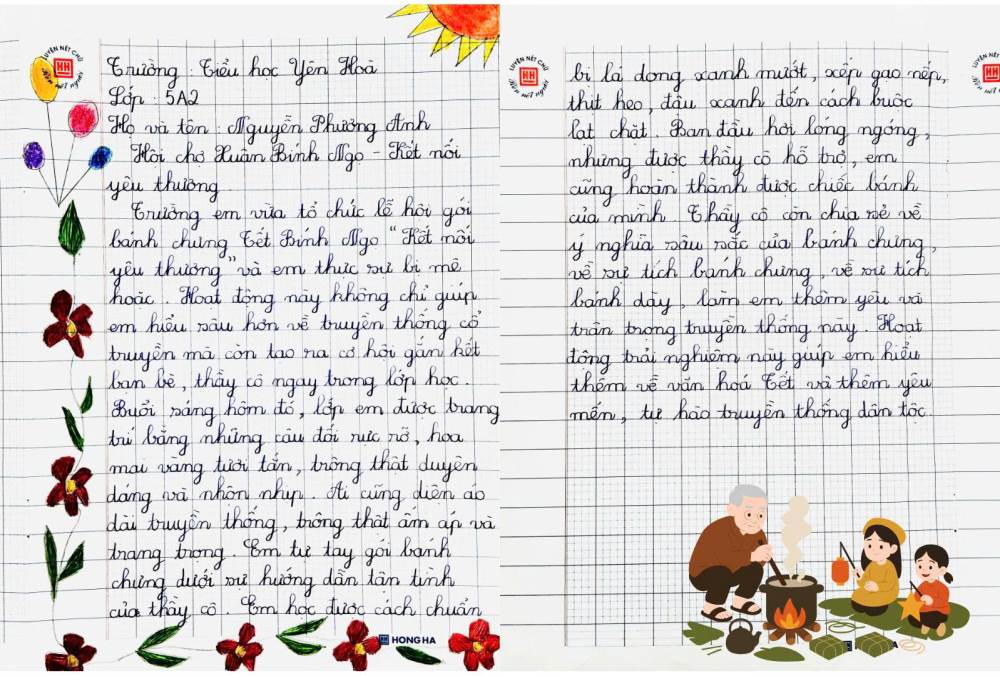 LUYỆN NÉT CHỮ
HH
RÈN NẾT NGƯỜI
Trường : Tiểu học Yên Hoà
Lớp : 5A2
Họ và tên : Nguyễn Phương Anh
Hội chợ Xuân Bính Ngọ - Kết nối
yêu thương
Trường em vừa tổ chức lễ hội gói
bánh chưng Tết Bính Ngọ "Kết nối
yêu thương" và em thực sự bị mê
hoặc . Hoạt động này không chỉ giúp
em hiểu sâu hơn về truyền thống cổ
truyền mà còn tạo ra cơ hội gắn kết
bạn bè , thầy cô ngay trong lớp học .
Buổi sáng hôm đó , lớp em được trang
trí bằng những câu đối rực rỡ , hoa
mai vàng tươi tắn , trông thật duyên
dáng và nhộn nhịp . Ai cũng diện áo
dài truyền thống , trông thật ấm áp và
trang trọng . Em tự tay gói bánh
chưng dưới sự hướng dẫn tận tình
của thầy cô . Em học được cách chuẩn
HH HONG HA
LUYỆN NÉT CHỮ
HH
RÈN NẾT NGƯỜI
LUYỆN NÉT CHỮ
HH
bị lá dong xanh mướt , xếp gạo nếp ,
thịt heo , đậu xanh đến cách buộc
lạt chặt . Ban đầu hơi lóng ngóng ,
nhưng được thầy cô hỗ trợ , em
cũng hoàn thành được chiếc bánh
của mình . Thầy cô còn chia sẻ về
ý nghĩa sâu sắc của bánh chưng ,
về sự tích bánh chưng , về sự tích
bánh dày , làm em thêm yêu và
trân trọng truyền thống này . Hoạt
động trải nghiệm này giúp em hiểu
thêm về văn hoá Tết và thêm yêu
mến , tự hào truyền thống dân tộc .